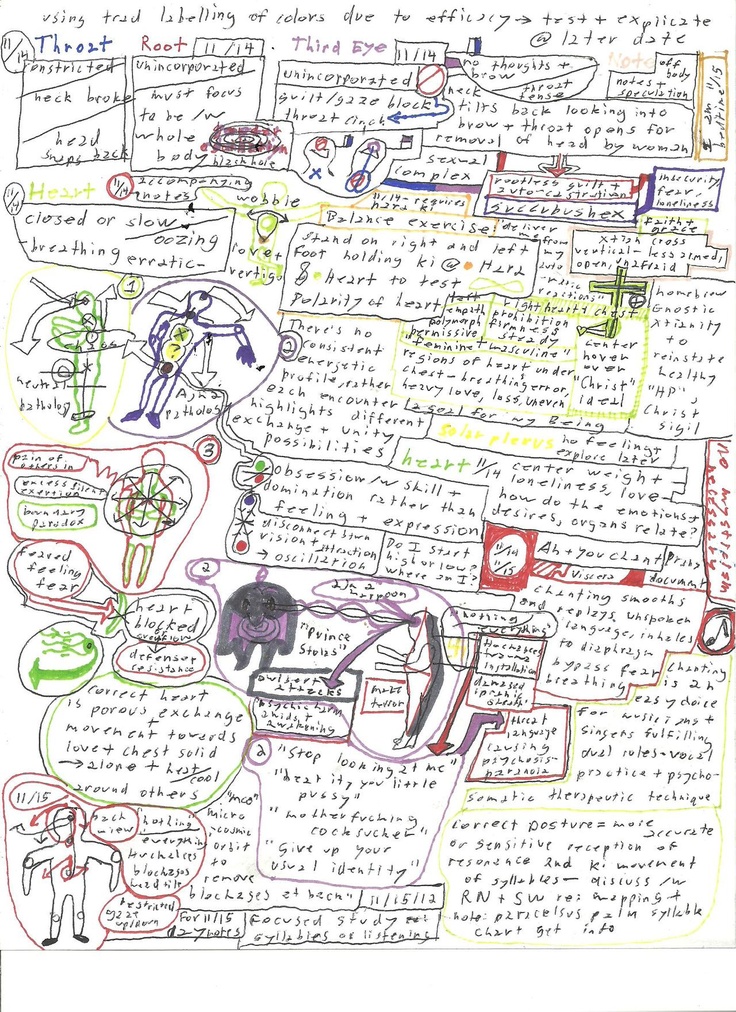 using trad labelling of colors due to efficacy → test + explicate
@ later date
11/14
Throat
constricted
neck broke
head
snaps back
Root
11/14
unincorporated
must focus
to be /w
whole
body
black hole
Third Eye
11/14
unincorporated
guilt/gaze block
throat cinch
no thoughts +
brow
throat
tense
neck
tilts back looking into
brow + throat opens for
removal of head by woman
Note
off
body
notes +
speculation
2m 11/15
routine
sexual
complex
rootless guilt +
auto-castration
succubus hex
insecurity,
fear,
loneliness
11/14
Heart
closed or slow
oozing
-breathing erratic-
11/14
accompanying
notes
wobble
love +
vertigo
11/14 - requires
hara ki
Balance exercise:
Stand on right and left
foot holding ki @ Hara
& Heart to test
Polarity of heart
deliver
me
from
my
auto
reactions"
faith +
grace
xtian cross
vertical - less armed,
open, unafraid
1
chaos
neutral
pathology
2
Ajna
pathology
There's no
consistent
energetic
profile, rather
each encounter
highlights different
exchange + unity
possibilities
left
empath
polymorph
permissive
"feminine"
right heart + chest
prohibition
firmness
steady
"masculine"
regions of heart under
chest - breathing error
heavy love, loss, uneven
center
hover
over
"Christ"
ideal
a seal for my Being
homebrew
gnostic
Xtianity
to
reinstate
healthy
"HP",
Christ
sigil
3
pain of
others in
excess silent
exertion
boundary
paradox
solar plexus
no feeling +
explore later
heart 11/14
center weight +
loneliness, love -
how do the emotions +
desires, organs relate?
No mysticism
necessary
obsession /w skill +
domination rather than
feeling + expression
disconnect btwn
vision + attraction
→ oscillation
Do I start
high or low?
where am I?
11/14
11/15
Ah + you chant
Viscera
document
chanting smooths
and
replays, unspoken
language, inhales
to diaphragm
bypass fear
breathing
feared
feeling
fear
heart
blocked
overflow
defenser
resistance
2
Ajna
harpoon
"Prince
Stolas"
owlsert
attacks
psychic harm
amidst
awakening
mate
terror
"nothing
everything"
throat
language
causing
psychosis -
paranoia
chanting
is an
easy choice
for musicians +
singers fulfilling
dual roles - vocal
practice + psycho-
somatic therapeutic technique
correct heart
is porous exchange
+
movement towards
love + chest solid
→ alone + heat/cool
around others
2
"Stop looking at me"
"hear it, you little
pussy"
"motherfucking
cocksucker"
"Give up your
usual identity"
11/15/12
11/15
back
view
"nothing"
everything
restricted
gaze
up/down
"mco"
micro
cosmic
orbit
to
remove
blockages at back"
For 11/15
day notes
Focused study
syllables of listening
Correct Posture = more
accurate
or sensitive reception of
resonance and ki movement
of syllables - discuss /w
RN + SW re: mapping +
note: paracelsus palm syllable
chart get info